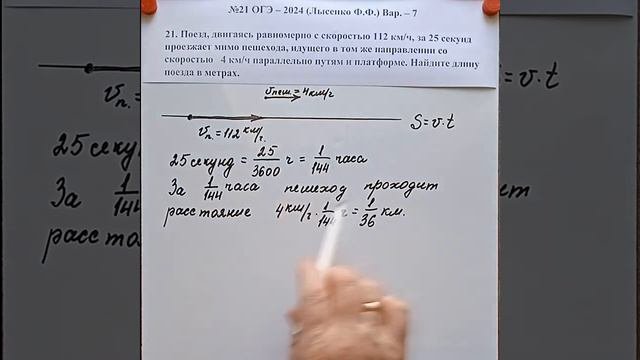 №21 ОГЭ – 2024 (Лысенко Ф.Ф.) Вар. – 7
21. Поезд, двигаясь равномерно с скоростью 112 км/ч, за 25 секунд
проезжает мимо пешехода, идущего в том же направлении со
скоростью 4 км/ч параллельно путям и платформе. Найдите длину
поезда в метрах.
Vпеш. = 4 км/ч
Vп. = 112 км/ч.
S = v · t
25 секунд = 25/3600 ч = 1/144 часа
За 1/144 часа пешеход проходит
расстояние 4 км/ч · 1/144 ч = 1/36 км.